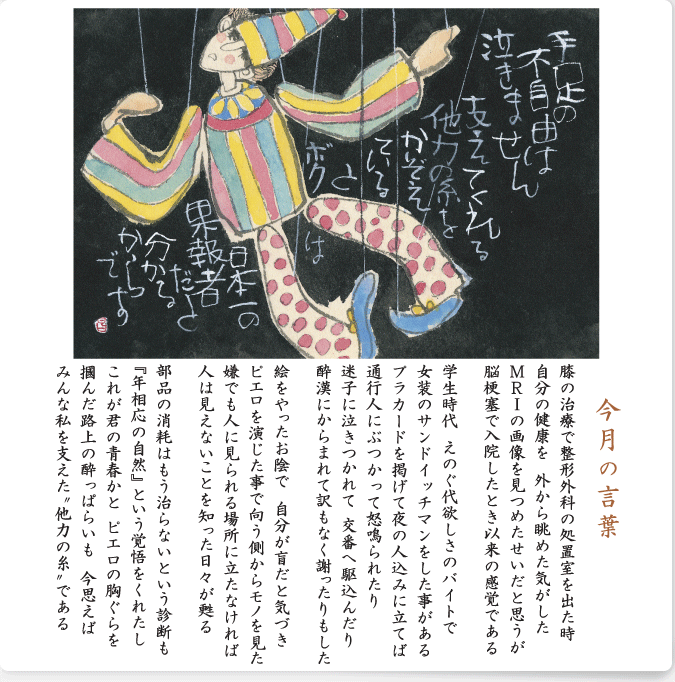 手足の
不自由は
泣きません
支えてくれる
他力の糸を
かぞえ
ている
と
ボクは
日本一の
果報者
だと
分かる
から
です
今月の言葉
膝の治療で整形外科の処置室を出た時
自分の健康を 外から眺めた気がした
MRIの画像を見つめたせいだと思うが
脳梗塞で入院したとき以来の感覚である
学生時代 えのぐ代欲しさのバイトで
女装のサンドイッチマンをした事がある
プラカードを掲げて夜の人込みに立てば
通行人にぶつかって怒鳴られたり
迷子に泣きつかれて 交番へ駆込んだり
酔漢にからまれて訳もなく謝ったりもした
絵をやったお陰で 自分が盲だと気づき
ピエロを演じた事で向う側からモノを見た
嫌でも人に見られる場所に立たなければ
人は見えないことを知った日々が甦る
部品の消耗はもう治らないという診断も
『年相応の自然』という覚悟をくれたし
これが君の青春かと ピエロの胸ぐらを
摑んだ路上の酔っぱらいも 今思えば
みんな私を支えた〝他力の糸〟である